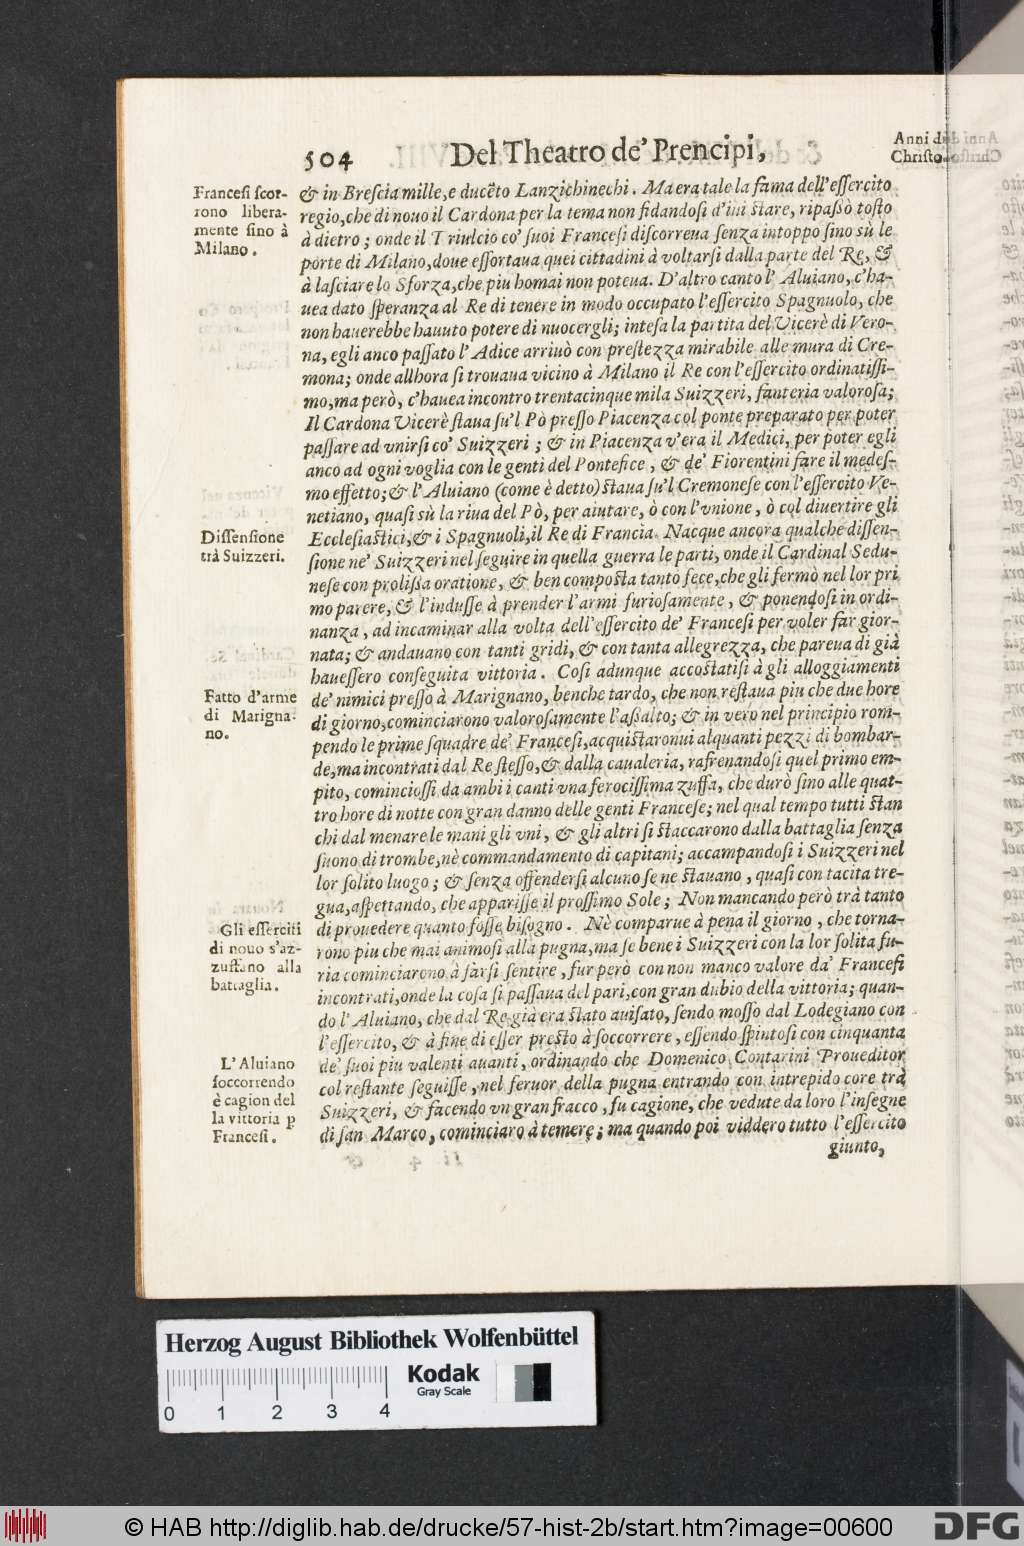 504 Del Theatro de' Prencipi,
Anni di
Christo
Francesi scor-
rono libera-
mente sino à
Milano.
& in Brescia mille, e ducẽto Lanzichinechi. Ma era tale la fama dell'essercito
regio, che di nouo il Cardona per la tema non fidandosi d'iui stare, ripassò tosto
à dietro; onde il Triulcio co' suoi Francesi discorreua senza intoppo sino sù le
porte di Milano, doue essortaua quei cittadini à voltarsi dalla parte del Re, &
à lasciare lo Sforza, che piu homai non poteua. D'altro canto l'Aluiano, c'ha-
uea dato speranza al Re di tenere in modo occupato l'essercito Spagnuolo, che
non hauerebbe hauuto potere di nuocergli; intesa la partita del Vicerè di Vero-
na, egli anco passato l'Adice arriuò con prestezza mirabile alle mura di Cre-
mona; onde allhora si trouaua vicino à Milano il Re con l'essercito ordinatissi-
mo, ma però, c'hauea incontro trentacinque mila Suizzeri, fanteria valorosa;
Il Cardona Vicerè staua su'l Pò presso Piacenza col ponte preparato per poter
passare ad vnirsi co' Suizzeri; & in Piacenza v'era il Medici, per poter egli
anco ad ogni voglia con le genti del Pontefice, & de' Fiorentini fare il medes-
mo effetto; & l'Aluiano (come è detto) staua su'l Cremonese con l'essercito Ve-
netiano, quasi sù la riua del Pò, per aiutare, ò con l'vnione, ò col diuertire gli
Dissensione
trà Suizzeri.
Ecclesiastici, & i Spagnuoli, il Re di Francia. Nacque ancora qualche dissen-
sione ne' Suizzeri nel seguire in quella guerra le parti, onde il Cardinal Sedu-
nese con prolissa oratione, & ben composta tanto fece, che gli fermò nel lor pri
mo parere, & l'indusse à prender l'armi furiosamente, & ponendosi in ordi-
nanza, ad incaminar alla volta dell'essercito de' Francesi per voler far gior-
nata; & andauano con tanti gridi, & con tanta allegrezza, che pareua di già
hauessero conseguita vittoria. Cosi adunque accostatisi à gli alloggiamenti
Fatto d'arme
di Marigna-
no.
de' nimici presso à Marignano, benche tardo, che non restaua piu che due hore
di giorno, cominciarono valorosamente l'assalto; & in vero nel principio rom-
pendo le prime squadre de' Francesi, acquistaronui alquanti pezzi di bombar-
de, ma incontrati dal Re stesso, & dalla caualeria, rafrenandosi quel primo em-
pito, cominciossi da ambi i canti vna ferocissima zuffa, che durò sino alle quat-
tro hore di notte con gran danno delle genti Francese; nel qual tempo tutti stan
chi dal menare le mani gli vni, & gli altri si staccarono dalla battaglia senza
suono di trombe, nè commandamento di capitani; accampandosi i Suizzeri nel
lor solito luogo; & senza offendersi alcuno se ne stauano, quasi con tacita tre-
gua, aspettando, che apparisse il prossimo Sole; Non mancando però trà tanto
Gli esserciti
di nouo s'az-
zuffano alla
battaglia.
di prouedere quanto fosse bisogno. Nè comparue à pena il giorno, che torna-
rono piu che mai animosi alla pugna, ma se bene i Suizzeri con la lor solita fu-
ria cominciarono à farsi sentire, fur però con non manco valore da' Francesi
incontrati, onde la cosa si passaua del pari, con gran dubio della vittoria; quan-
do l'Aluiano, che dal Re già era stato auisato, sendo mosso dal Lodegiano con
l'essercito, & à fine di esser presto à soccorrere, essendo spintosi con cinquanta
L'Aluiano
soccorrendo
è cagion del
la vittoria p
Francesi.
de' suoi piu valenti auanti, ordinando che Domenico Contarini Proueditor
col restante seguisse, nel feruor della pugna entrando con intrepido core trà
Suizzeri, & facendo vn gran fracco, fu cagione, che vedute da loro l'insegne
di san Marco, cominciaro à temere; ma quando poi viddero tutto l'essercito
giunto,
Herzog August Bibliothek Wolfenbüttel
Kodak
Gray Scale
0 1 2 3 4
© HAB http://diglib.hab.de/drucke/57-hist-2b/start.htm?image=00600
DFG